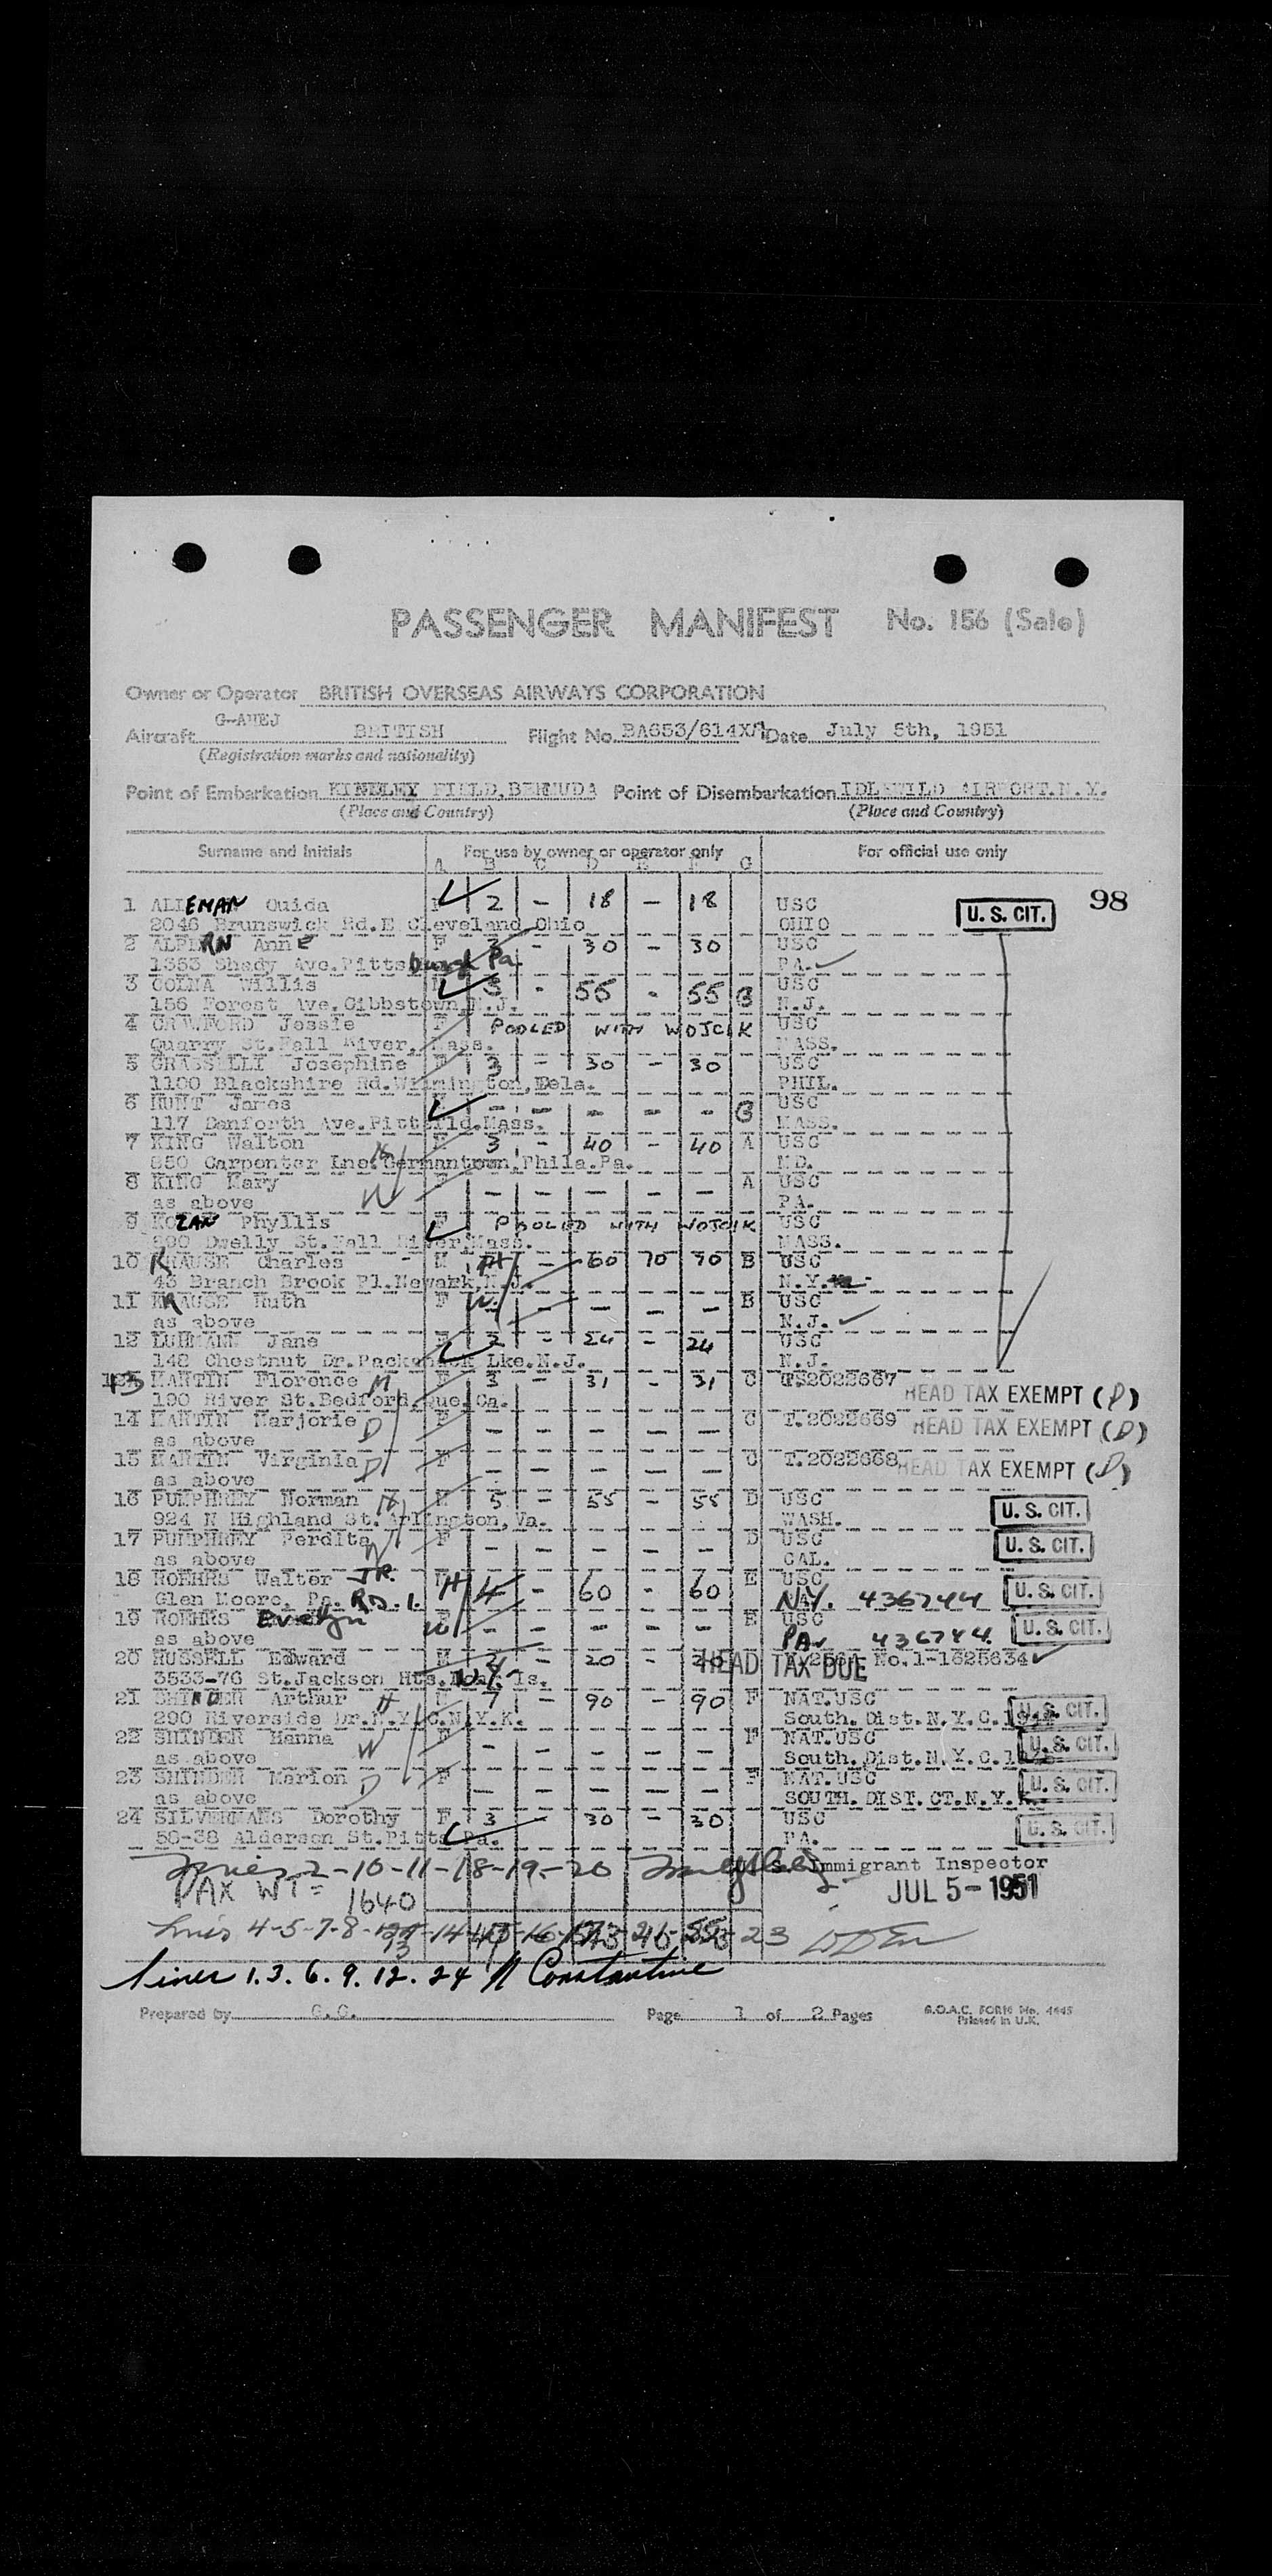 PASSENGER MANIFEST No. 156 (Sale)
Owner or Operator BRITISH OVERSEAS AIRWAYS CORPORATION
G-AHEJ
Aircraft BRITISH Flight No. BA653/614X Date July 5th, 1951
(Registration marks and nationality)
Point of Embarkation KINDLEY FIELD, BERMUDA Point of Disembarkation IDLEWILD AIRPORT.N.Y.
(Place and Country) (Place and Country)
Surname and Initials For use by owner or operator only For official use only
A B C D E F G
98
1 ALLEMAN Ouida F 2 - 18 - 18 USC U. S. CIT.
2046 Brunswick Rd.E Cleveland Ohio OHIO
2 ALPERN Anne F 3 - 30 - 30 USC
1353 Shady Ave.Pittsburgh Pa. PA.
3 COLNA Willis 3 - 55 - 55 B USC
156 Forest Ave.Gibbstown N.J. N.J.
4 CRAWFORD Jessie F POOLED WITH WOJCIK USC
Quarry St.Fall River, Mass. MASS.
5 GRASSELLI Josephine F 3 - 30 - 30 USC
1100 Blackshire Rd.Wilmington,Dela. PHIL.
6 HUNT James - - - - - B USC
117 Danforth Ave.Pittsfld.Mass. MASS.
7 KING Walton H M 3 - 40 - 40 A USC
850 Carpenter Lne.Germantown,Phila.Pa. MD.
8 KING Mary W F - - - - - A USC
as above PA.
9 KOZAK Phyllis F POOLED WITH WOJCIK USC
Dwelly St.Fall River Mass. MASS.
10 KRAUSE Charles M H - 60 70 70 B USC
43 Branch Brook Pl.Newark,N.J. N.Y.
11 KRAUSE Ruth F W - - - - B USC
as above N.J.
12 Jane F 2 - 24 - 24 USC
142 Chestnut Dr.Packanack Lke.N.J. N.J.
13 MARTIN Florence M F 3 - 31 - 31 C T.2022667 HEAD TAX EXEMPT (P)
190 River St.Bedford,Que.Ca.
14 MARTIN Marjorie D F - - - - - C T.2022669 HEAD TAX EXEMPT (D)
as above
15 MARTIN Virginia D F - - - - - C T.2022668 HEAD TAX EXEMPT (D)
as above
16 PUMPHREY Norman H M 5 - 55 - 55 D USC U. S. CIT.
924 N Highland St.Arlington,Va. WASH.
17 PUMPHREY Perdita W F - - - - - D USC U. S. CIT.
as above CAL.
18 ROEHRS Walter JR. M H 4 - 60 - 60 E USC U. S. CIT.
Glen Moore, Pa. RD. 1. N.Y. 436744
19 ROEHRS Evelyn F W - - - - - E USC U. S. CIT.
as above PA. 436744
20 RUSSELL Edward M 2 - 20 - 20 HEAD TAX DUE No.1-1625634
3533-76 St.Jackson Hts.Long Is. N.Y.
21 SHINDER Arthur H M 7 - 90 - 90 F NAT.USC U. S. CIT.
290 Riverside Dr.N.Y.C.N.Y.K. South.Dist.N.Y.C.
22 SHINDER Hanna W F - - - - - F NAT.USC U. S. CIT.
as above South.Dist.N.Y.C.
23 SHINDER Marion D F - - - - - F NAT.USC U. S. CIT.
as above SOUTH.DIST.CT.N.Y.
24 SILVERMANS Dorothy F 3 - 30 - 30 USC U. S. CIT.
56-38 Alderson St.Pitts Pa. PA.
2-10-11-18-19-20 Immigrant Inspector
PAX WT = 1640 JUL 5- 1951
Lines 4-5-7-8-13-14-15-16-17-21-22-23
Lines 1.3.6.9.12.24 Constantine
Prepared by G.G. Page 1 of 2 Pages B.O.A.C. FORM No. 4445
Printed in U.K.